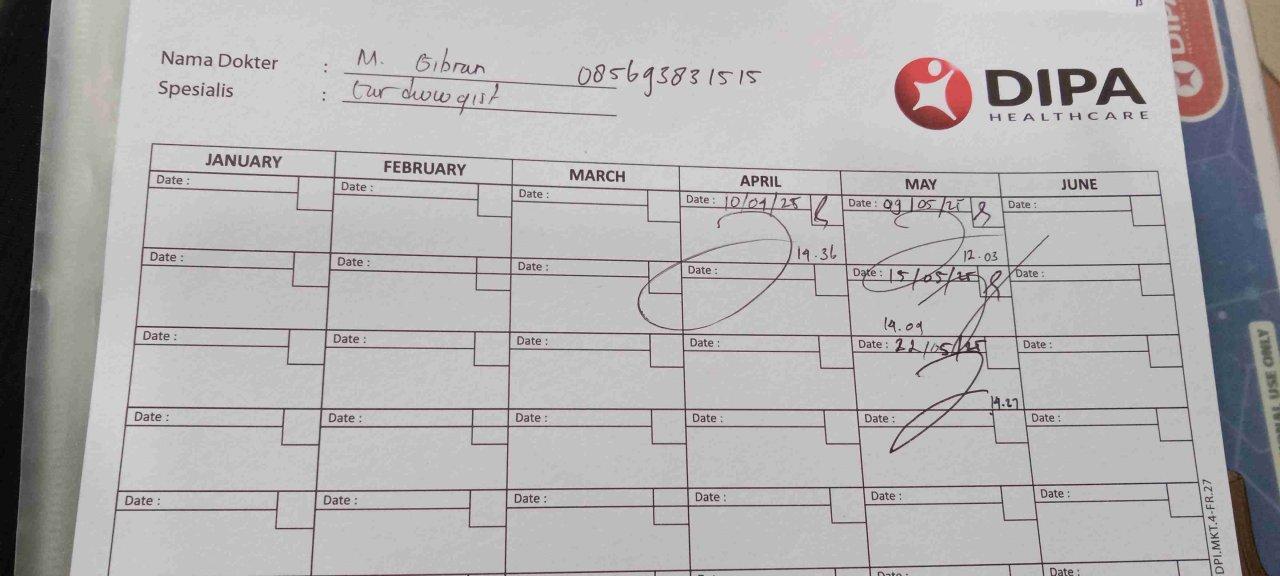 Nama Dokter : M. Gibran 085693831515
Spesialis :
DIPA
HEALTHCARE
JANUARY FEBRUARY MARCH APRIL MAY JUNE
Date : Date : Date : Date : 10/04/25 Date : 09/05/25 Date :
14.36 12.03
Date : Date : Date : Date : Date : 15/05/25 Date :
14.09
Date : Date : Date : Date : Date : 22/05/25 Date :
14.27
Date : Date : Date : Date : Date : Date :
Date : Date : Date : Date : Date : Date :
Date : Date : Date :
DPI.MKT.4-FR.27
DIPA
USE ONLY